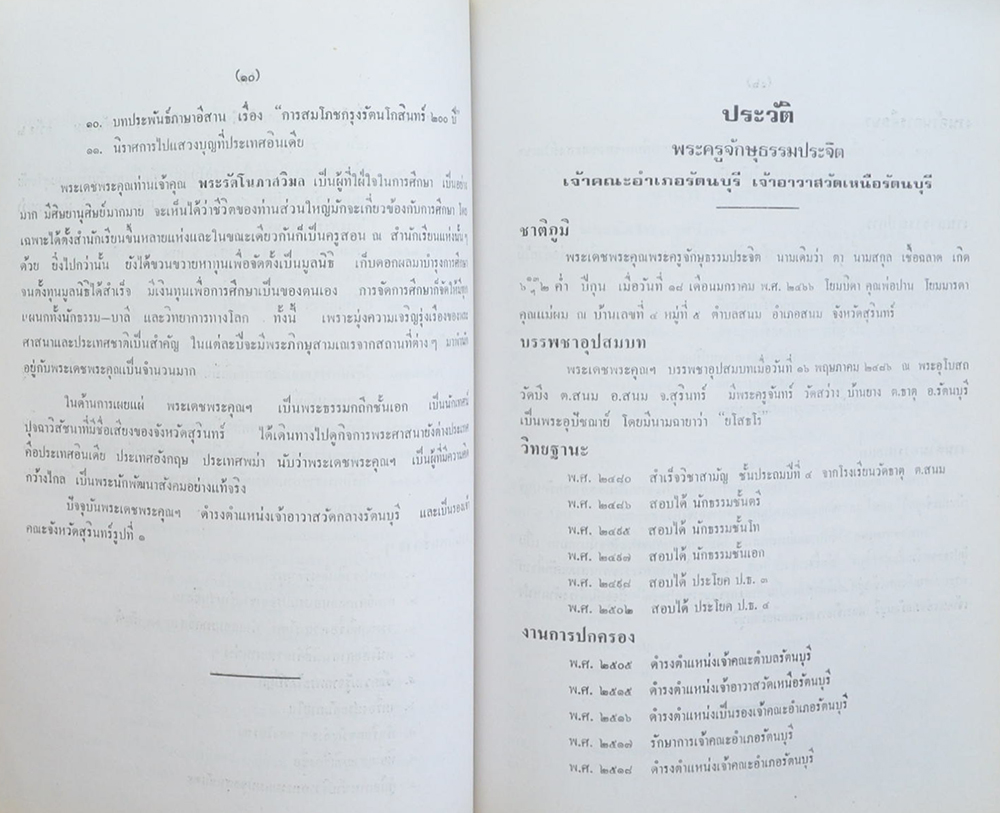 (๑๐)
๑๐. บทประพันธ์ภาษาอีสาน เรื่อง "การสมโภชกรุงรัตนโกสินทร์ ๒๐๐ ปี"
๑๑. นิราศการไปแสวงบุญที่ประเทศอินเดีย
พระเดชพระคุณท่านเจ้าคุณ พระรัตโนภาสวิมล เป็นผู้ที่ใฝ่ใจในการศึกษา เป็นอย่าง
มาก มีศิษยานุศิษย์มากมาย จะเห็นได้ว่าชีวิตของท่านส่วนใหญ่มักจะเกี่ยวข้องกับการศึกษา โดย
เฉพาะได้ตั้งสำนักเรียนขึ้นหลายแห่งและในขณะเดียวกันก็เป็นครูสอน ณ สำนักเรียนแห่งนั้นๆ
ด้วย ยิ่งไปกว่านั้น ยังได้ขวนขวายหาทุนเพื่อจัดตั้งเป็นมูลนิธิ เก็บดอกผลมาบำรุงการศึกษา
จนตั้งทุนมูลนิธิได้สำเร็จ มีเงินทุนเพื่อการศึกษาเป็นของตนเอง การจัดการศึกษาก็จัดให้มีทุก
แผนกทั้งนักธรรม—บาลี และวิทยาการทางโลก ทั้งนี้ เพราะมุ่งความเจริญรุ่งเรืองของพระ
ศาสนาและประเทศชาติเป็นสำคัญ ในแต่ละปีจะมีพระภิกษุสามเณรจากสถานที่ต่างๆ มาพำนัก
อยู่กับพระเดชพระคุณเป็นจำนวนมาก
ในด้านการเผยแผ่ พระเดชพระคุณฯ เป็นพระธรรมกถึกชั้นเอก เป็นนักเทศน์
ปุจฉาวิสัชนาที่มีชื่อเสียงของจังหวัดสุรินทร์ ได้เดินทางไปดูกิจการพระศาสนายังต่างประเทศ
คือประเทศอินเดีย ประเทศอังกฤษ ประเทศพม่า นับว่าพระเดชพระคุณฯ เป็นผู้ที่มีความคิด
กว้างไกล เป็นพระนักพัฒนาสังคมอย่างแท้จริง
ปัจจุบันพระเดชพระคุณฯ ดำรงตำแหน่งเจ้าอาวาสวัดกลางรัตนบุรี และเป็นรองเจ้า
คณะจังหวัดสุรินทร์รูปที่ ๑
ประวัติ
พระครูจักษุธรรมประจิต
เจ้าคณะอำเภอรัตนบุรี เจ้าอาวาสวัดเหนือรัตนบุรี
ชาติภูมิ
พระเดชพระคุณพระครูจักษุธรรมประจิต นามเดิมว่า ตา นามสกุล เชื้อฉลาด เกิด
ค่ำ ปีกุน เมื่อวันที่ ๑๘ เดือนมกราคม พ.ศ. ๒๔๖๖ โยมบิดา คุณพ่อปาน โยมมารดา
คุณแม่ผม ณ บ้านเลขที่ ๔ หมู่ที่ ๕ ตำบลสนม อำเภอสนม จังหวัดสุรินทร์
บรรพชาอุปสมบท
พระเดชพระคุณฯ บรรพชาอุปสมบทเมื่อวันที่ ๑๖ พฤษภาคม ๒๔๘๖ ณ พระอุโบสถ
วัดบึง ต.สนม อ.สนม จ.สุรินทร์ มีพระครูจันทร์ วัดสว่าง บ้านยาง ต.ธาตุ อ.รัตนบุรี
เป็นพระอุปัชฌาย์ โดยมีนามฉายาว่า "ยโสธโร"
วิทยฐานะ
พ.ศ. ๒๔๘๐ สำเร็จวิชาสามัญ ชั้นประถมปีที่ ๔ จากโรงเรียนวัดธาตุ ต.สนม
พ.ศ. ๒๔๘๖ สอบได้ นักธรรมชั้นตรี
พ.ศ. ๒๔๙๕ สอบได้ นักธรรมชั้นโท
พ.ศ. ๒๔๙๗ สอบได้ นักธรรมชั้นเอก
พ.ศ. ๒๔๙๘ สอบได้ ประโยค ป.ธ. ๓
พ.ศ. ๒๕๐๒ สอบได้ ประโยค ป.ธ. ๔
งานการปกครอง
พ.ศ. ๒๕๐๕ ดำรงตำแหน่งเจ้าคณะตำบลรัตนบุรี
พ.ศ. ๒๕๑๕ ดำรงตำแหน่งเจ้าอาวาสวัดเหนือรัตนบุรี
พ.ศ. ๒๕๑๖ ดำรงตำแหน่งเป็นรองเจ้าคณะอำเภอรัตนบุรี
พ.ศ. ๒๕๑๗ รักษาการเจ้าคณะอำเภอรัตนบุรี
พ.ศ. ๒๕๑๘ ดำรงตำแหน่งเจ้าคณะอำเภอรัตนบุรี